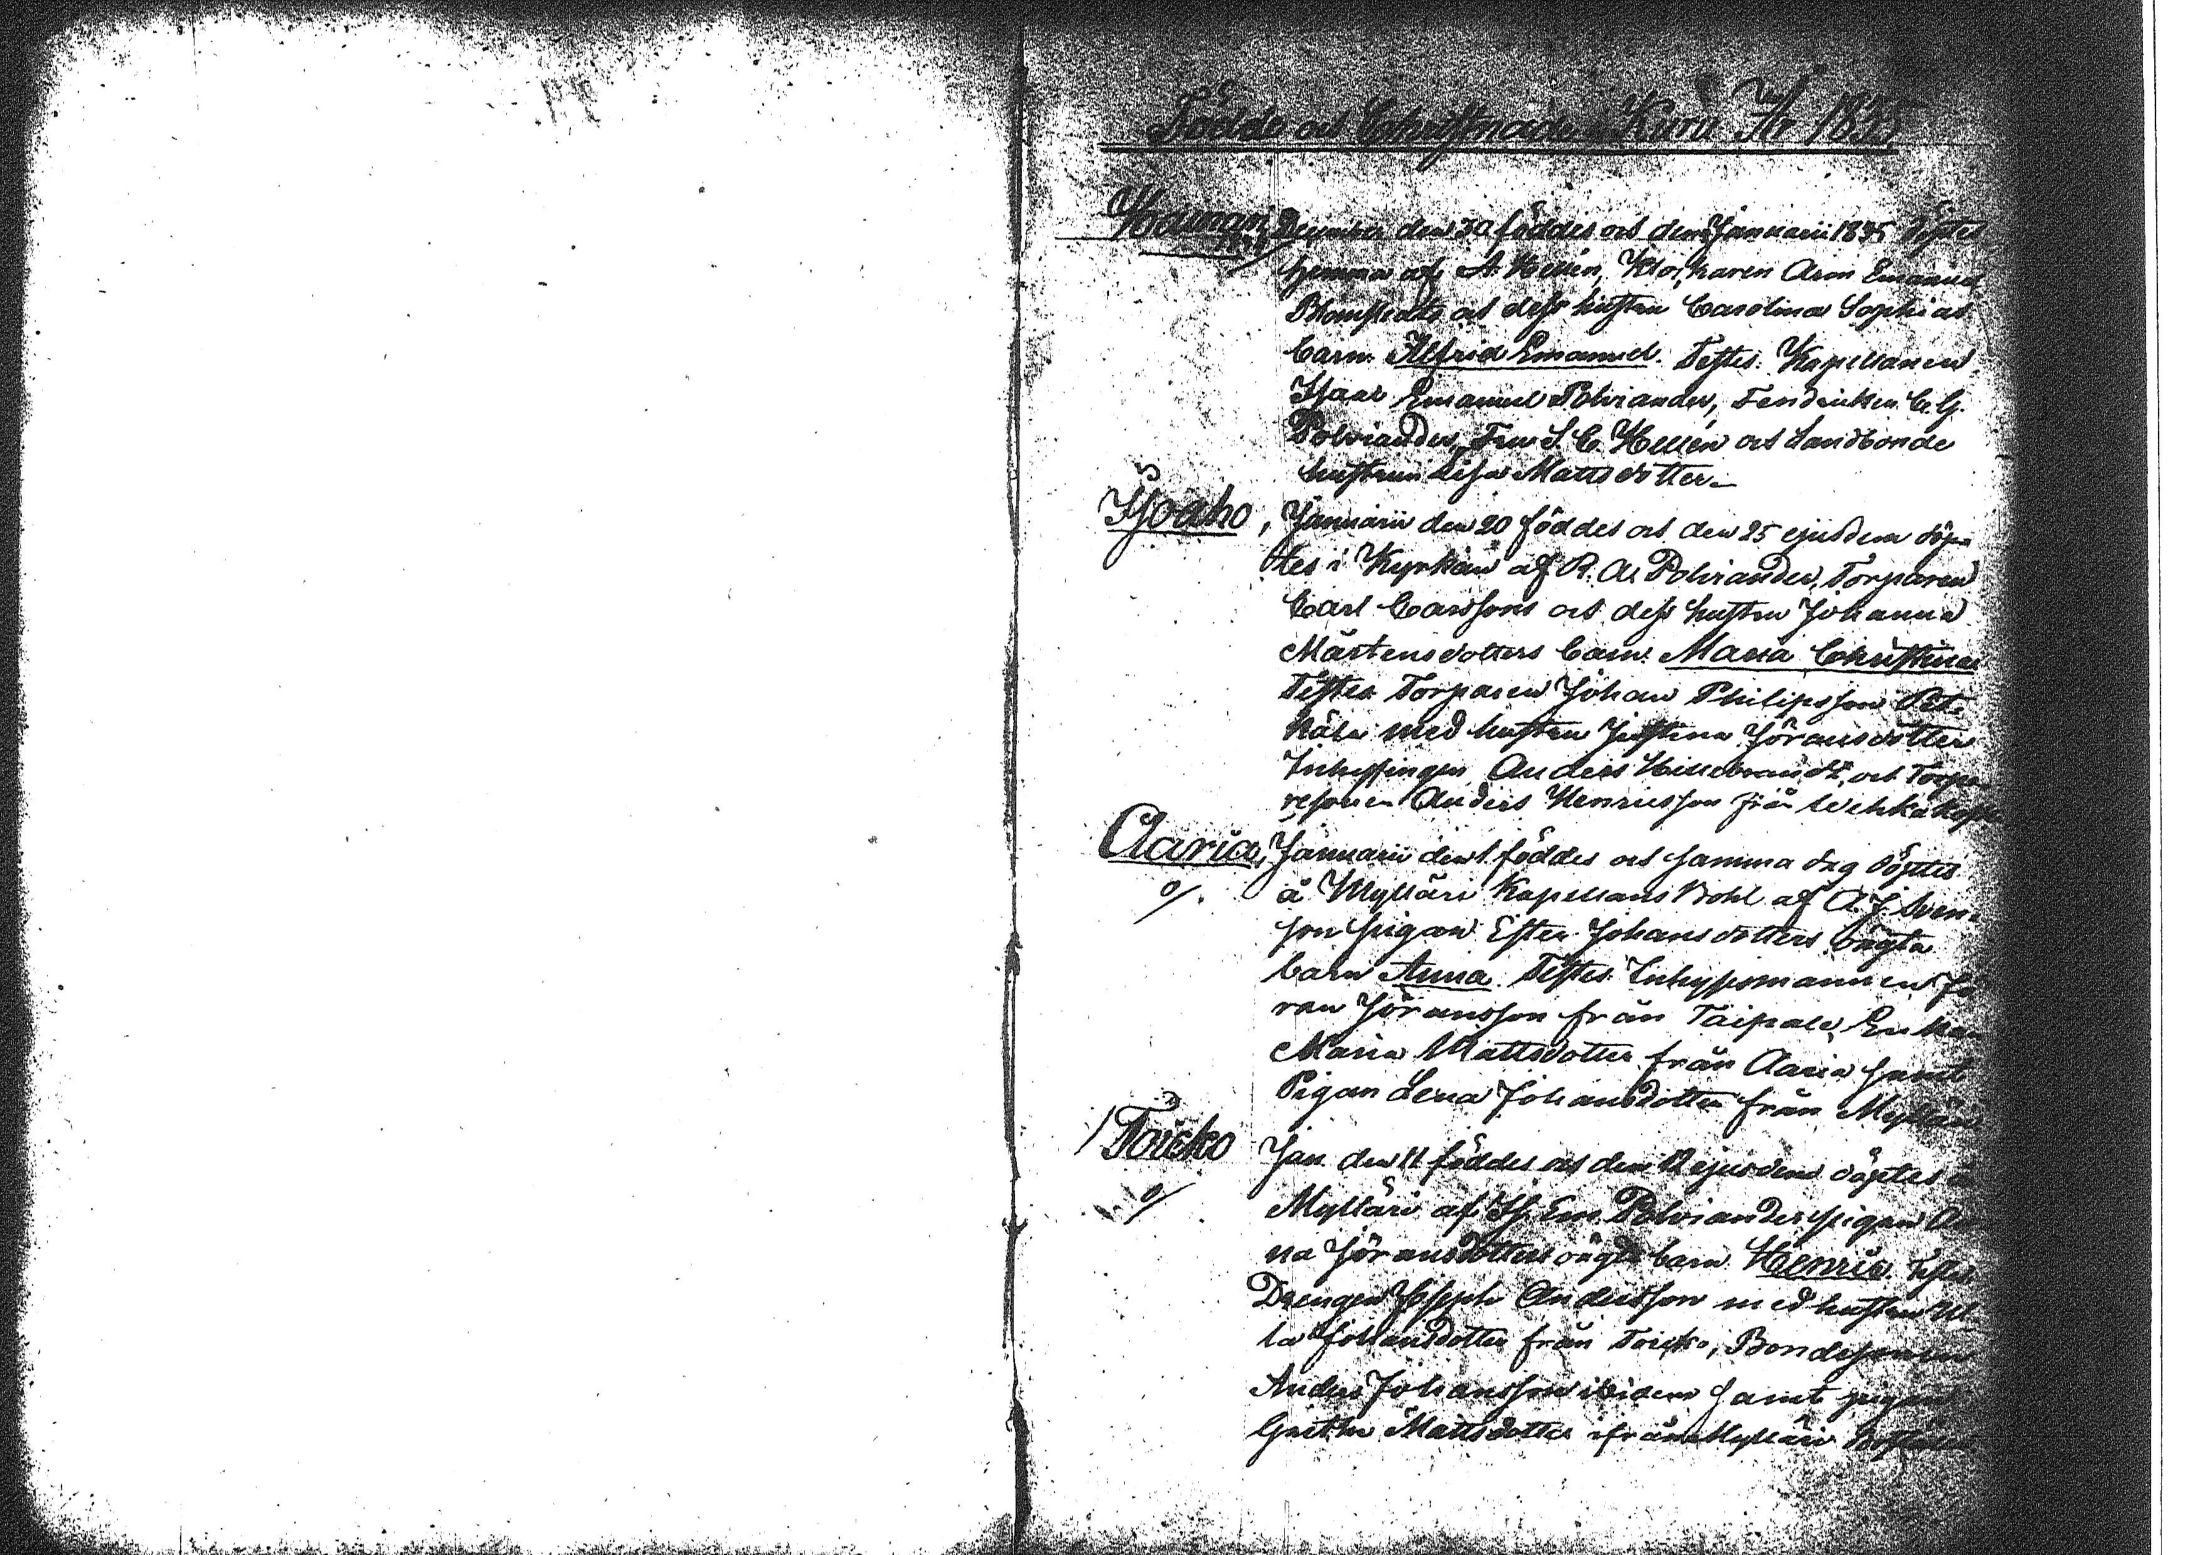 Födde och Christnade i Kuru År 1835
Haungi, December den 30 föddes och den Januarii 1835 döptes
1834
hemma af A. Hellén, Klockaren Aron Emanuel
Blomstedts och dess hustru Carolina Sophias
barn Alfred Emanuel. Testes: Kapellanen
Isaac Emanuel Polviander, Fendricken C. G.
Polviander, Fru S. C. Hellén och Landbonde
hustrun Lisa Mattsdotter.
Isoaho, Januarii den 20 föddes och den 25 ejusdem döp-
tes i Kyrkan af R. A. Polviander, Torparen
Carl Carlssons och dess hustru Johanna
Mårtensdotters barn Maria Christina
Testes Torparen Johan Philipsson Pet-
käla med hustru Justina Jöransdotter
Inhysingen Anders Hillebrandt och Torpa-
resonen Anders Henricsson från
Aaria, Januarii den 1 föddes och samma dag döptes
o/. å Mylläri Kapellans Bohl af A. J. Sven-
son pigan Ester Johansdotters oägta
barn Anna Testes Inhysesmannen Jö
ran Jöransson från Taipale, Enkan
Maria Mattsdotter från Aaria samt
Pigan Lena Johansdotter från Mylläri
Toicko Jan. den 11 föddes och den 12 ejusdem döptes å
o/ Mylläri af Is. Em. Polviander pigan An
na Jöransdotters oägta barn Henric. Testes
Drengen Joseph Andersson med hustru Ul
la Johansdotter från Toicko, Bondesonen
Anders Johansson ibidem samt pigan
Gretha Mattsdotter ifrån Mylläri